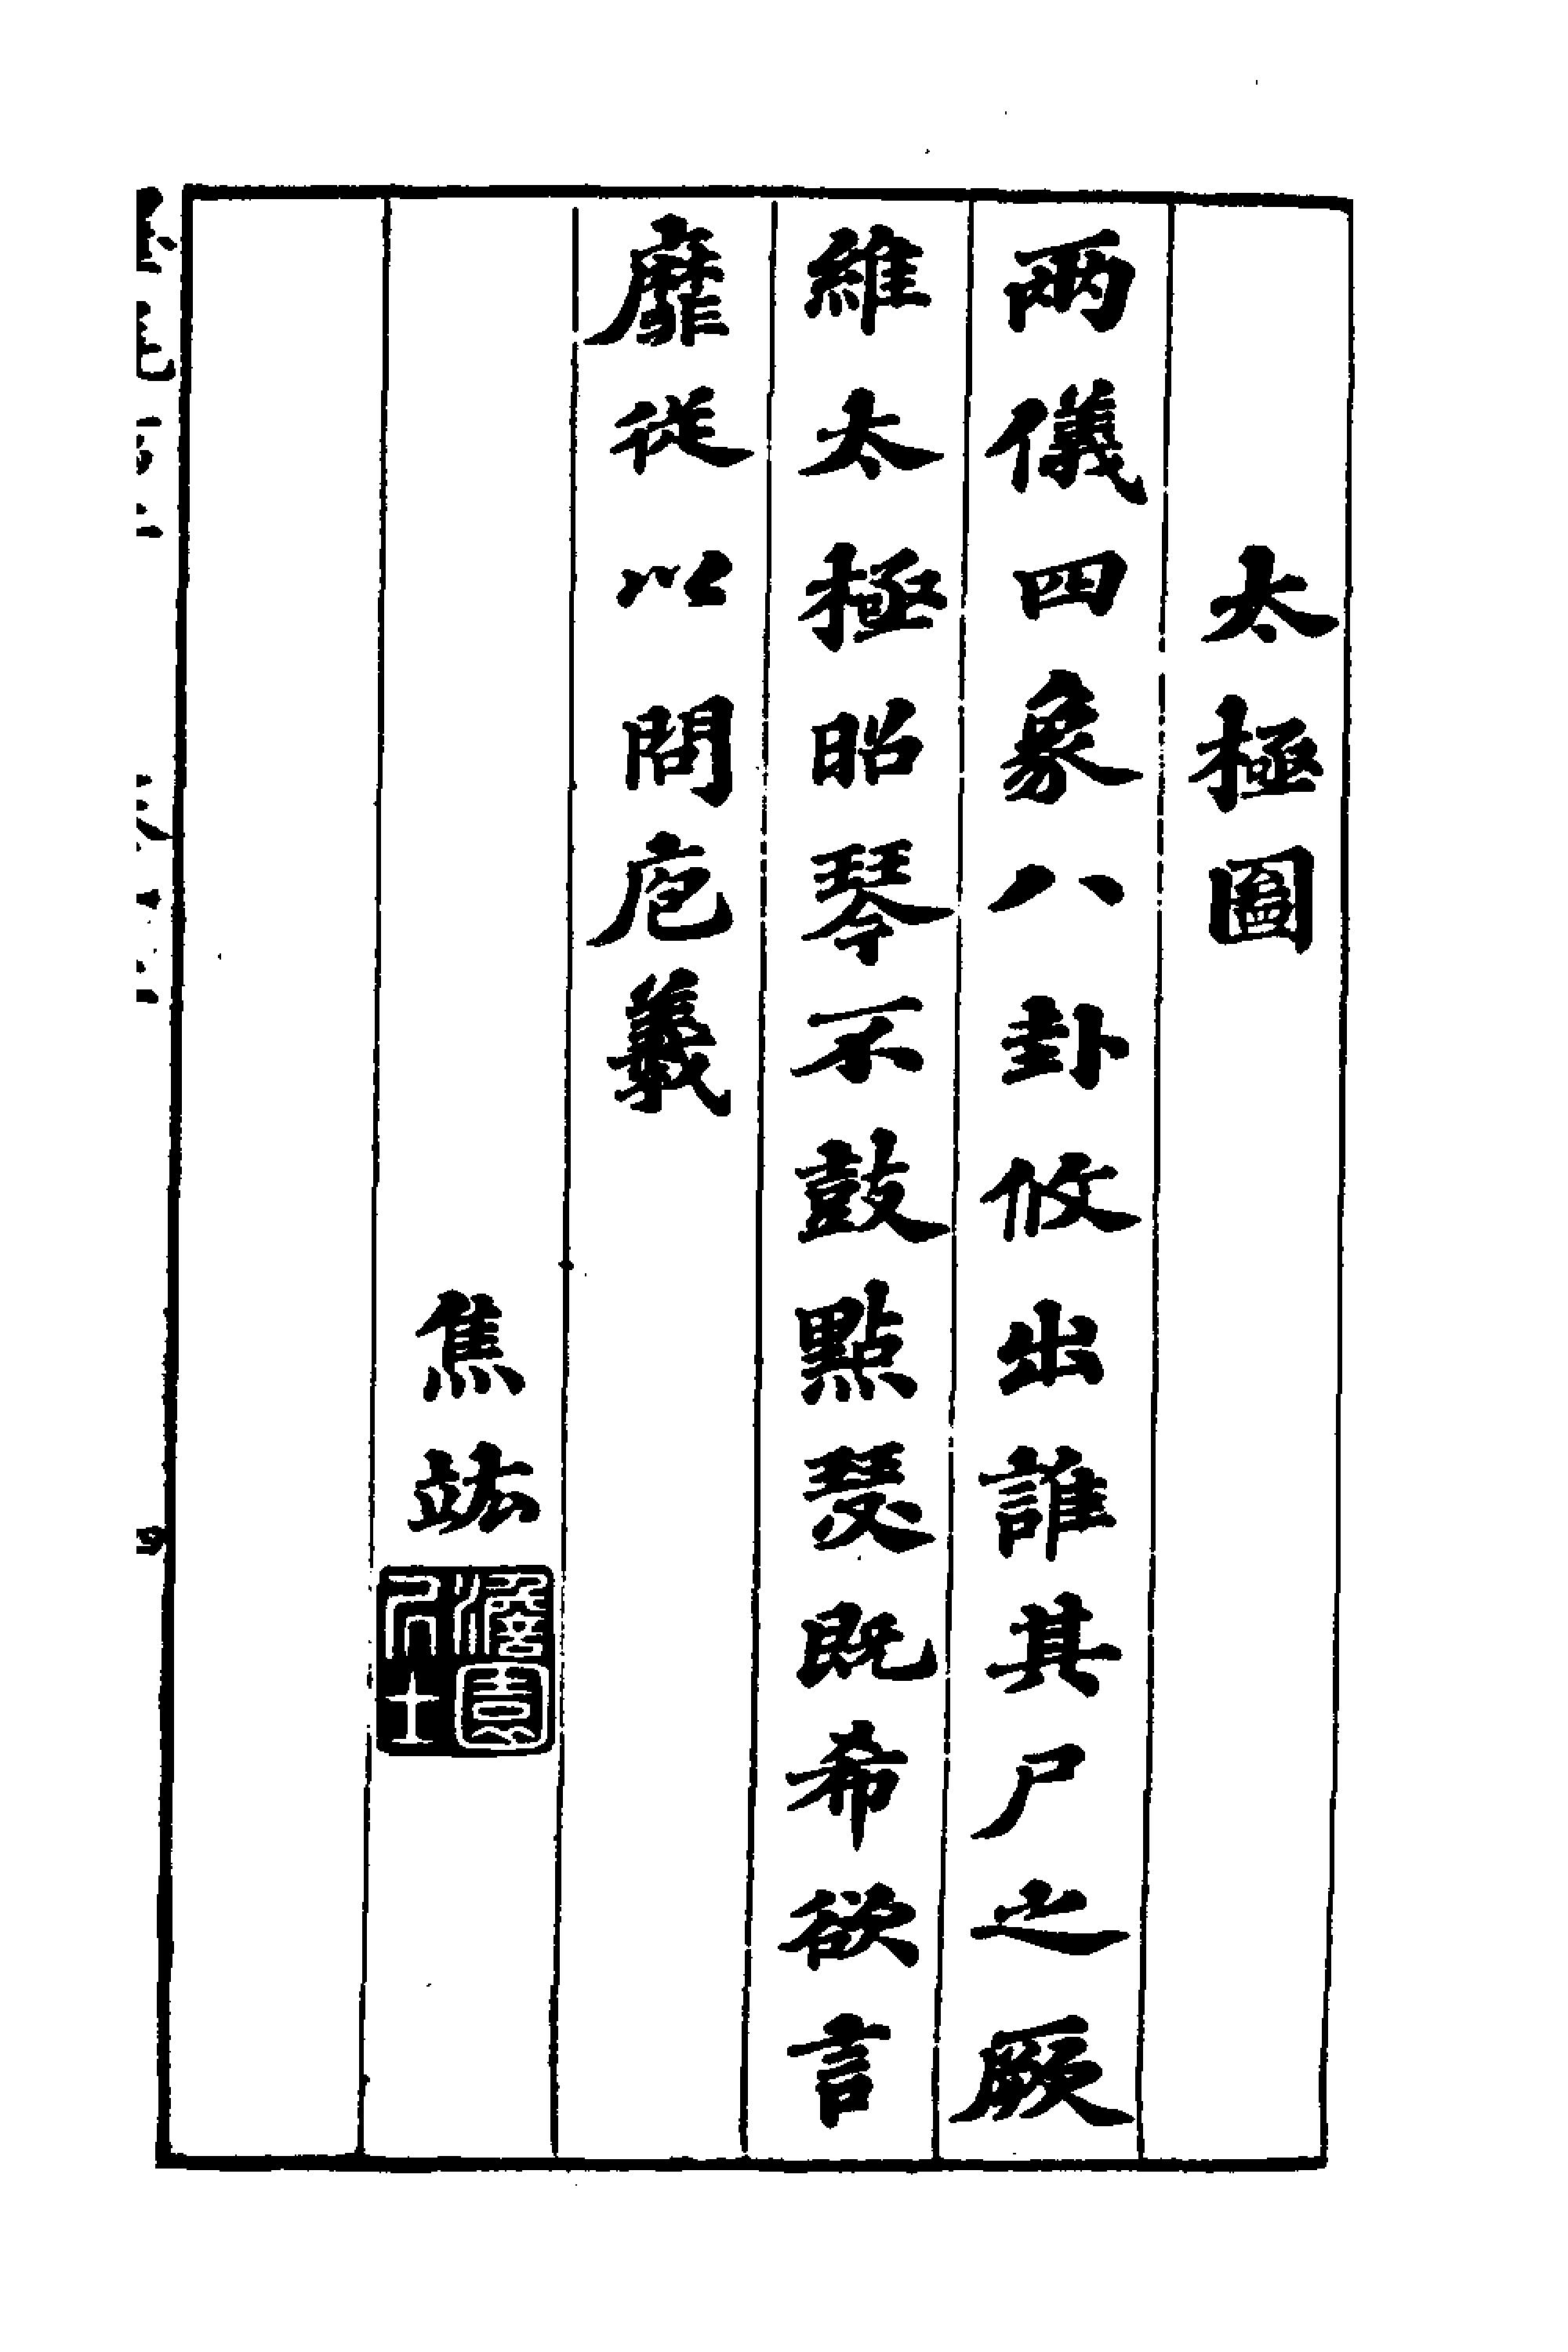 太極圖
兩儀四象八卦攸出誰其尸之厥
維太極昭琴不鼓點瑟既希欲言
靡從以問庖羲
焦竑
澹園
四